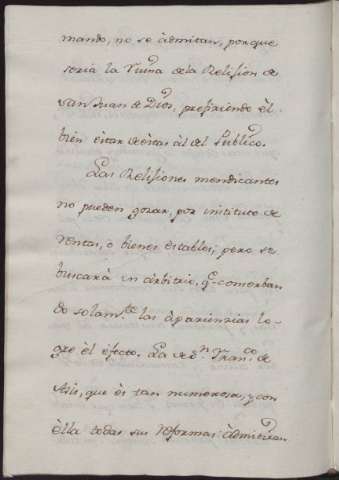 mando, no se àdmitan, porque
seria la Ruina dela Relijion de
san Juan de Dios, prefiriendo èl
bien èstar de èstas àl del Publico.
Las Relijiones mendicantes
no pueden gozar, por instituto de
rentas, o bienes estables; pero se
buscarà un àrbitrio, q.e
do solam.te las àpariencias lo-
gre èl èfecto. La de S.n Fran.co de
Asis, que ès tan numerosa, y con
èlla todas sus reformas àdmitiran